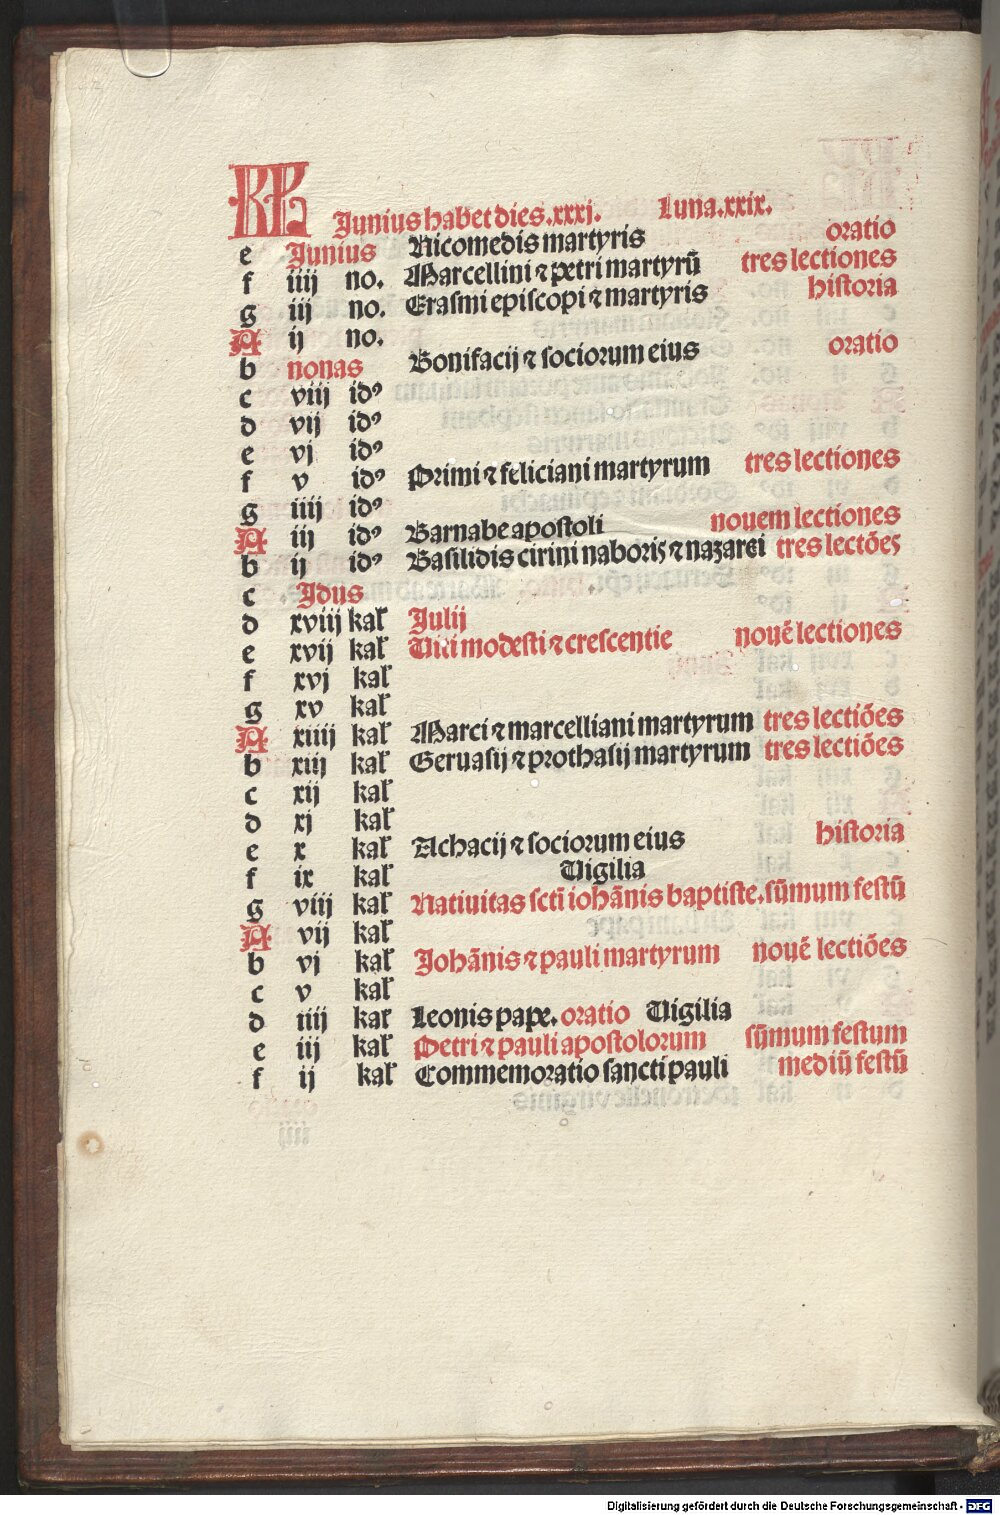 KL Junius habet dies.xxxj. Luna.xxix.
e Junius Nicomedis martyris oratio
f iiij no. Marcellini ⁊ petri martyrū tres lectiones
g iij no. Erasmi episcopi ⁊ martyris historia
A ij no.
b nonas Bonifacij ⁊ sociorum eius oratio
c viij idꝰ
d vij idꝰ
e vj idꝰ
f v idꝰ Primi ⁊ feliciani martyrum tres lectiones
g iiij idꝰ
A iij idꝰ Barnabe apostoli nouem lectiones
b ij idꝰ Basilidis cirini naboris ⁊ nazarei tres lectōes
c Jdus
d xviij kal' Julij
e xvij kal' Uiti modesti ⁊ crescentie nouē lectiones
f xvj kal'
g xv kal'
A xiiij kal' Marci ⁊ marcelliani martyrum tres lectiōes
b xiij kal' Geruasij ⁊ prothasij martyrum tres lectiōes
c xij kal'
d xj kal'
e x kal' Achacij ⁊ sociorum eius historia
f ix kal' Uigilia
g viij kal' Natiuitas scti iohānis baptiste.sūmum festū
A vij kal'
b vj kal' Johānis ⁊ pauli martyrum nouē lectiōes
c v kal'
d iiij kal' Leonis pape. oratio Uigilia
e iij kal' Petri ⁊ pauli apostolorum sūmum festum
f ij kal' Commemoratio sancti pauli mediū festū
Digitalisierung gefördert durch die Deutsche Forschungsgemeinschaft - DFG